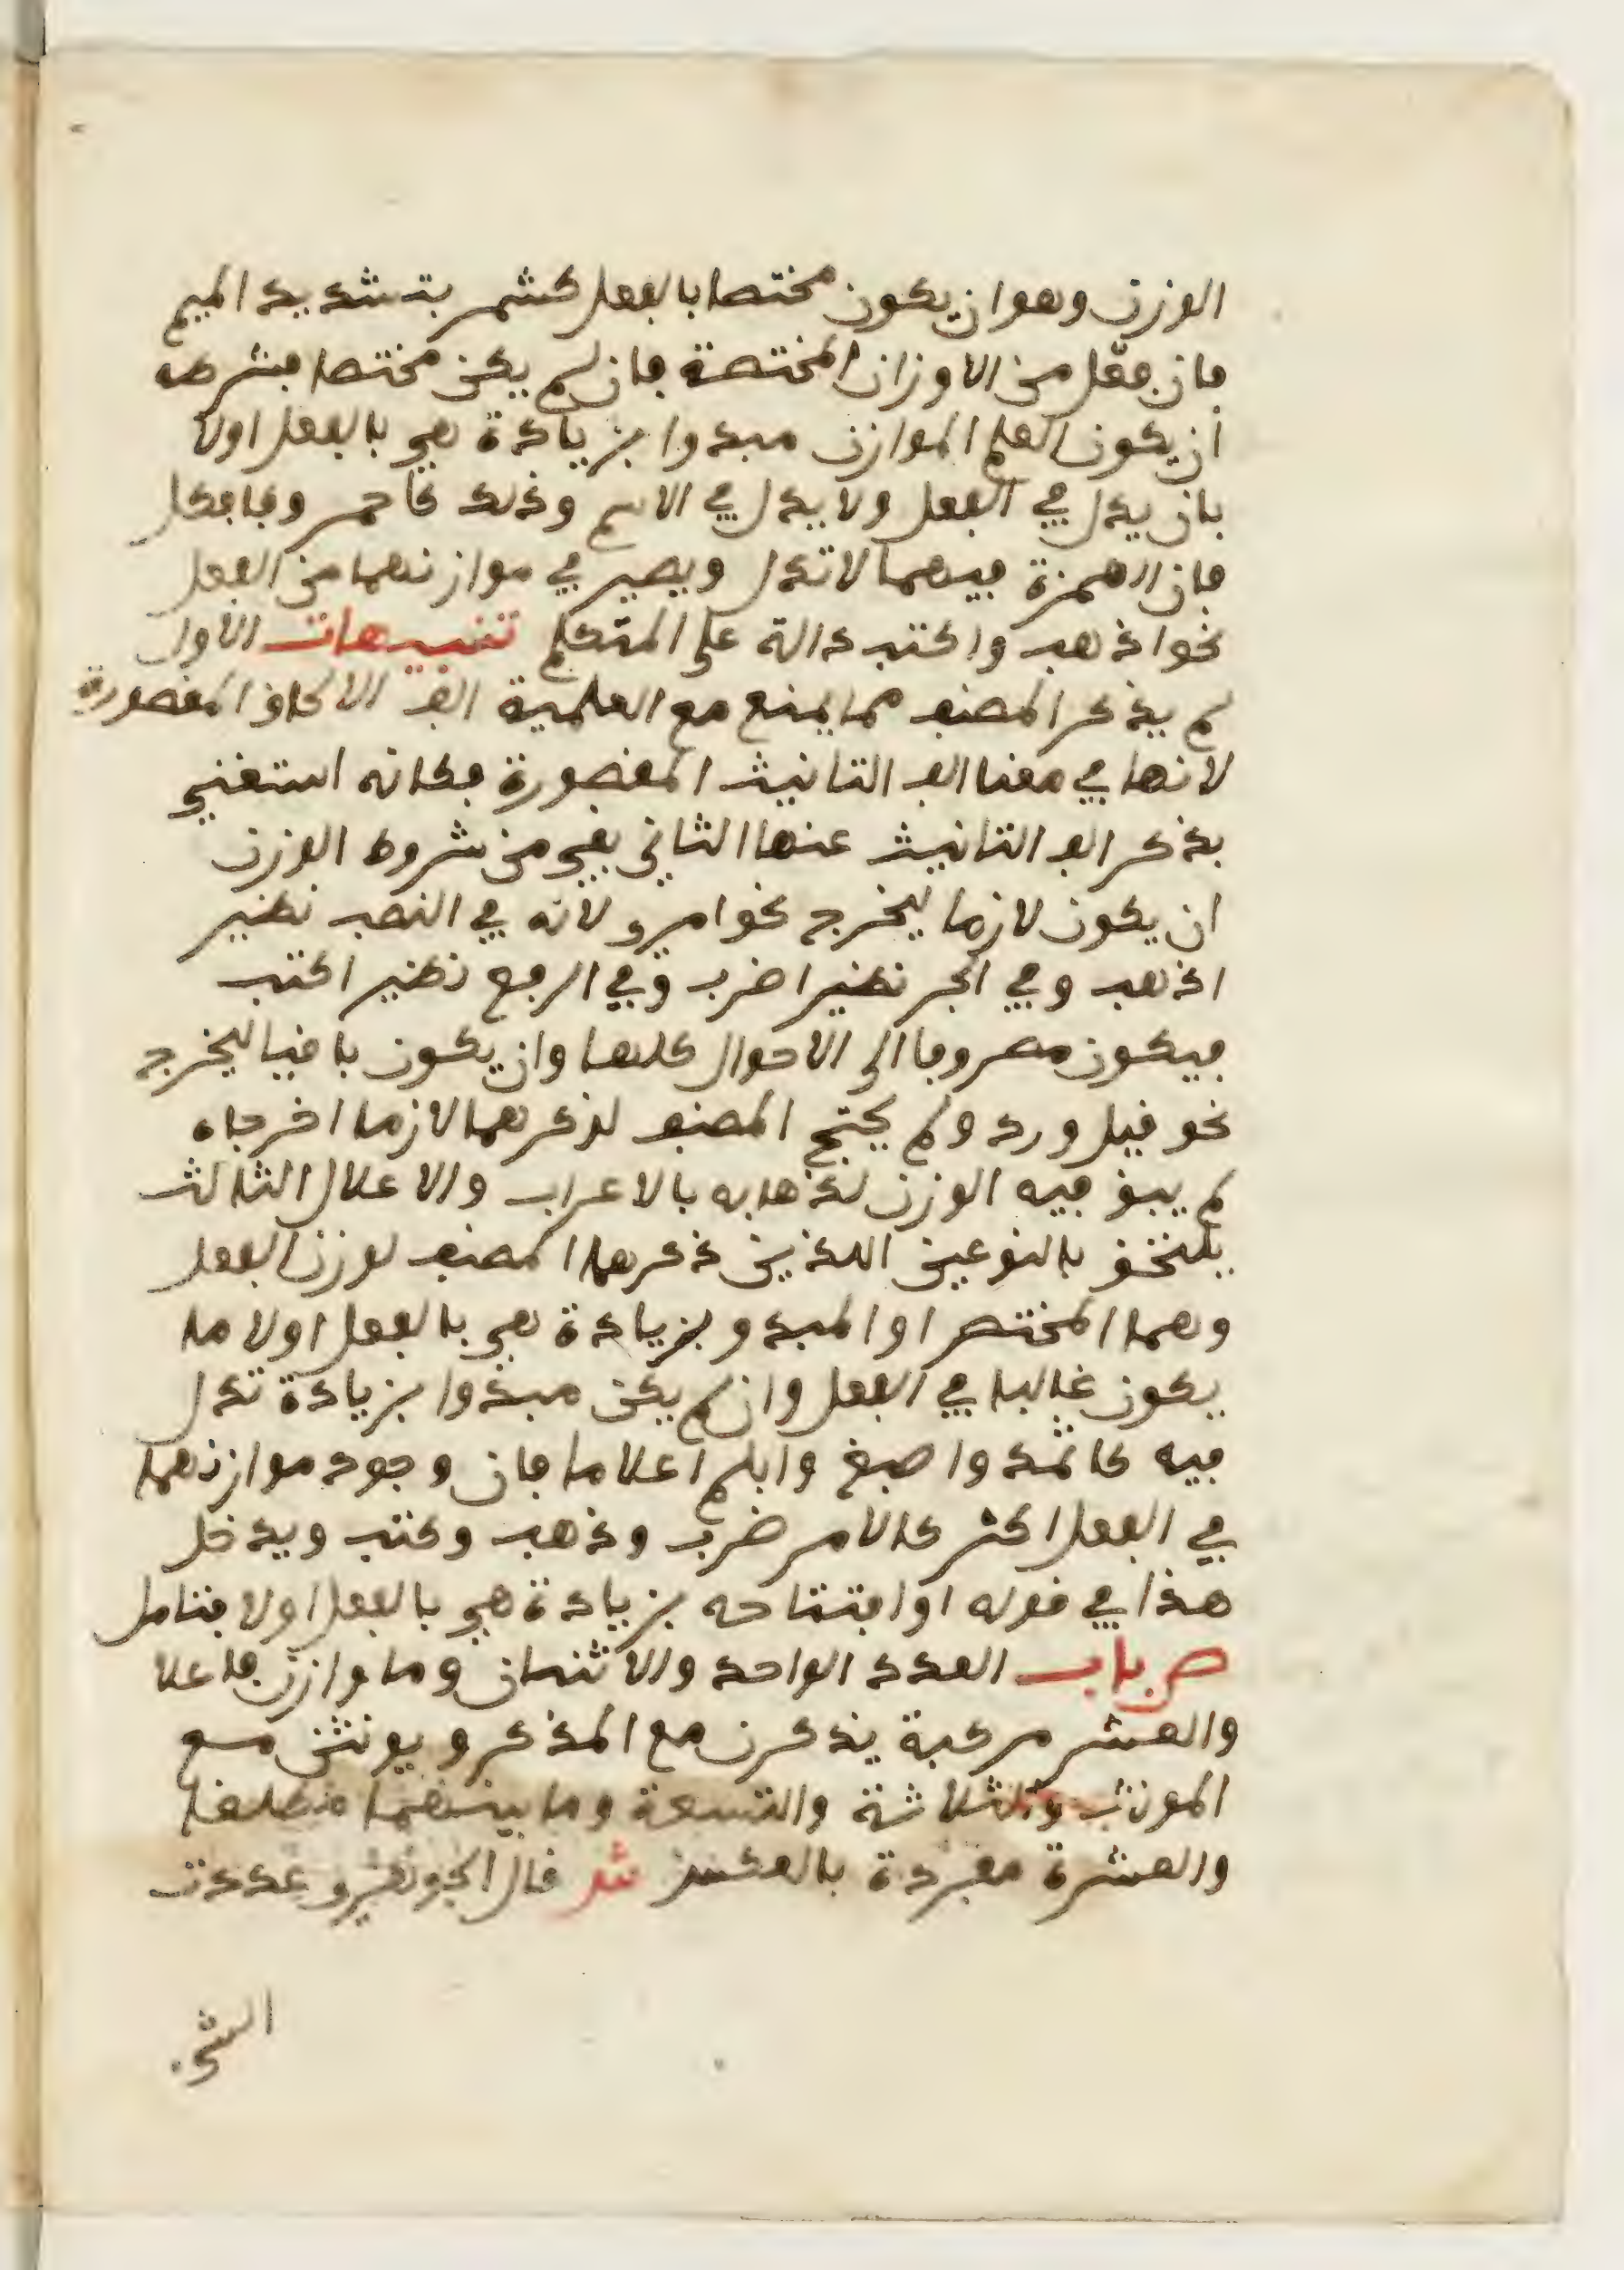 الوزن وهو ان يكون مختصا بالفعل كشمر بتشديد الميم
فان فعّل من الاوزان المختصة فان لم يكن مختصا فشرطه
ان يكون العلم الموازن مبدوا بزيادة هي بالفعل اولا
بان يدل في الفعل ولا يدل في الاسم وذلك كاحمر وفافكل
فان الهمزة فيهما لا تدل ويصير في موازنهما من الفعل
نحو اذهب واكتب دالة على المتكلم تنبيهات الاول
لم يذكر المصنف مما يمنع مع العلمية الف الالحاق المقصورة
لانها في معنا الف التانيث المقصورة فكانه استغني
بذكر الف التانيث عنها الثاني بقي من شروط الوزن
ان يكون لازما ليخرج نحو امرو لانه في النصب نظير
اذهب وفي الجر نظير اضرب وفي الرفع نظير اكتب
فيكون مصروفا الى الاحوال كلها وان يكون باقيا ليخرج
نحو قيل ورد ولم يحتج المصنف لذكرهما لازما اخرجاه
لم يبق فيه الوزن لذهابه بالاعراب والاعلال الثالث
يلتحق بالنوعين اللذين ذكرهما المصنف لوزن الفعل
وهما المختص او المبدو بزيادة هي بالفعل اولا ما
يكون غالبا في الفعل وان لم يكن مبدوا بزيادة تدل
فيه كاثمد واصبغ وابلم اعلاما فان وجود موازنهما
في الفعل اكثر كالامر ضرب وذهب وكتب ويدخل
هذا في قوله او افتتاحه بزيادة هي بالفعل اولا فتامل
ص باب العدد الواحد والاثنان وما وازن فاعلا
والعشر مركبة يذكرن مع المذكر ويونثن مع
المونث والثلاثة والتسعة وما بينهما مطلقا
والعشرة مفردة بالعكس ش قال الجوهري عددت
الشي